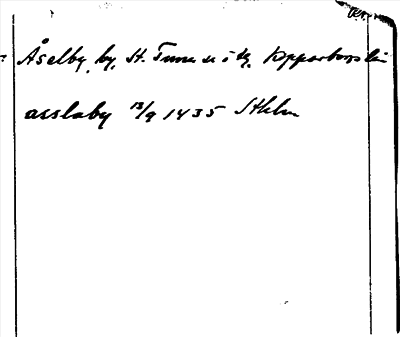 Åselby, by, St. Tuna sn i Kopparbergs län
assloby 13/9 1435 Sthlm